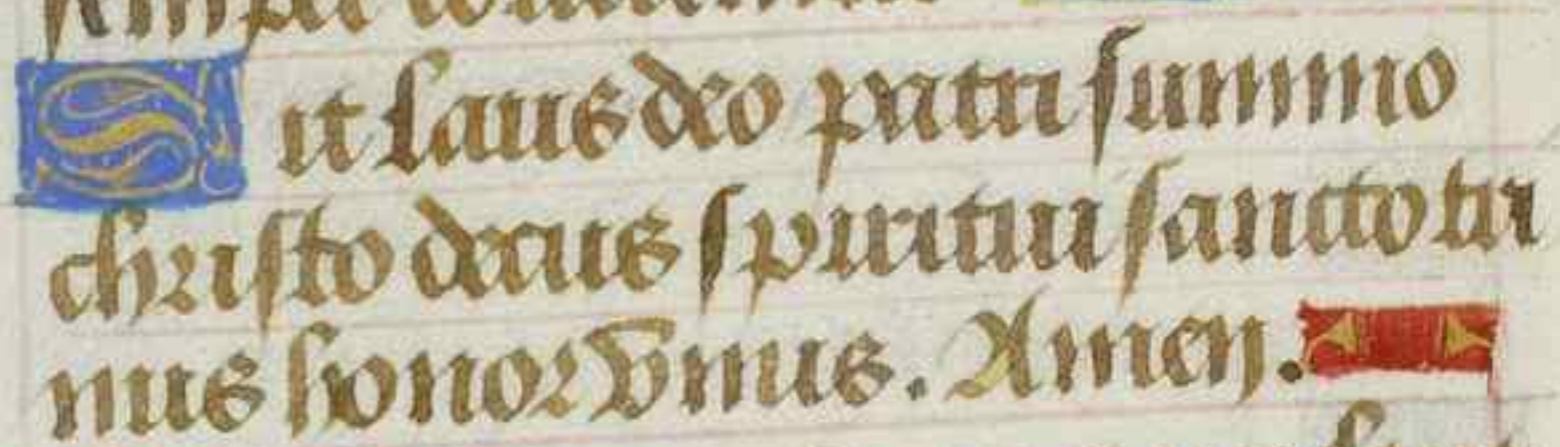 semper
Sit laus deo patri summo
christo decus spiritui sancto tri
nus honor vnus. Amen.